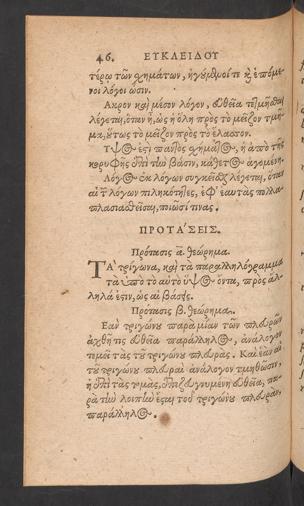 46. ΕΥΚΛΕΙΔΟΥ
τέρῳ τῶν χημάτων, ἡγούμενοί τε καὶ ἑπόμε-
νοι λόγοι ὦσιν.
Ακρον καὶ μέσον λόγον, εὐθεῖα τετμῆσθαι
λέγεται, ὅταν ᾖ, ὡς ἡ ὅλη πρὸς τὸ μεῖζον τμῆ-
μα, οὕτως τὸ μεῖζον πρὸς τὸ ἔλασσον.
Υψος ἐστὶ παντὸς σχήματος, ἡ ἀπὸ τῆς
κορυφῆς ἐπὶ τὴν βάσιν, κάθετος ἀγομένη.
Λόγος ἐκ λόγων συγκεῖσθαι λέγεται, ὅταν
αἱ τῶν λόγων πηλικότητες, ἐφ' ἑαυτὰς πολλα-
πλασιασθεῖσαι, ποιῶσί τινας.
ΠΡΟΤΑΣΕΙΣ.
Πρότασις α. θεώρημα.
Τὰ τρίγωνα, καὶ τὰ παραλληλόγραμμα
τὰ ὑπὸ τὸ αὐτὸ ὕψος ὄντα, πρὸς ἄλ-
ληλά ἐστιν, ὡς αἱ βάσεις.
Πρότασις β. θεώρημα.
Εὰν τριγώνου παρὰ μίαν τῶν πλευρῶν
ἀχθῇ τις εὐθεῖα παράλληλος, ἀνάλογον
τεμεῖ τὰς τοῦ τριγώνου πλευράς. Καὶ ἐὰν αἱ
τοῦ τριγώνου πλευραὶ ἀνάλογον τμηθῶσιν,
ἡ ἐπὶ τὰς τομὰς, ἐπιζευγνυμένη εὐθεῖα, πα-
ρὰ τὴν λοιπὴν ἔσται τοῦ τριγώνου πλευρὰν,
παράλληλος.